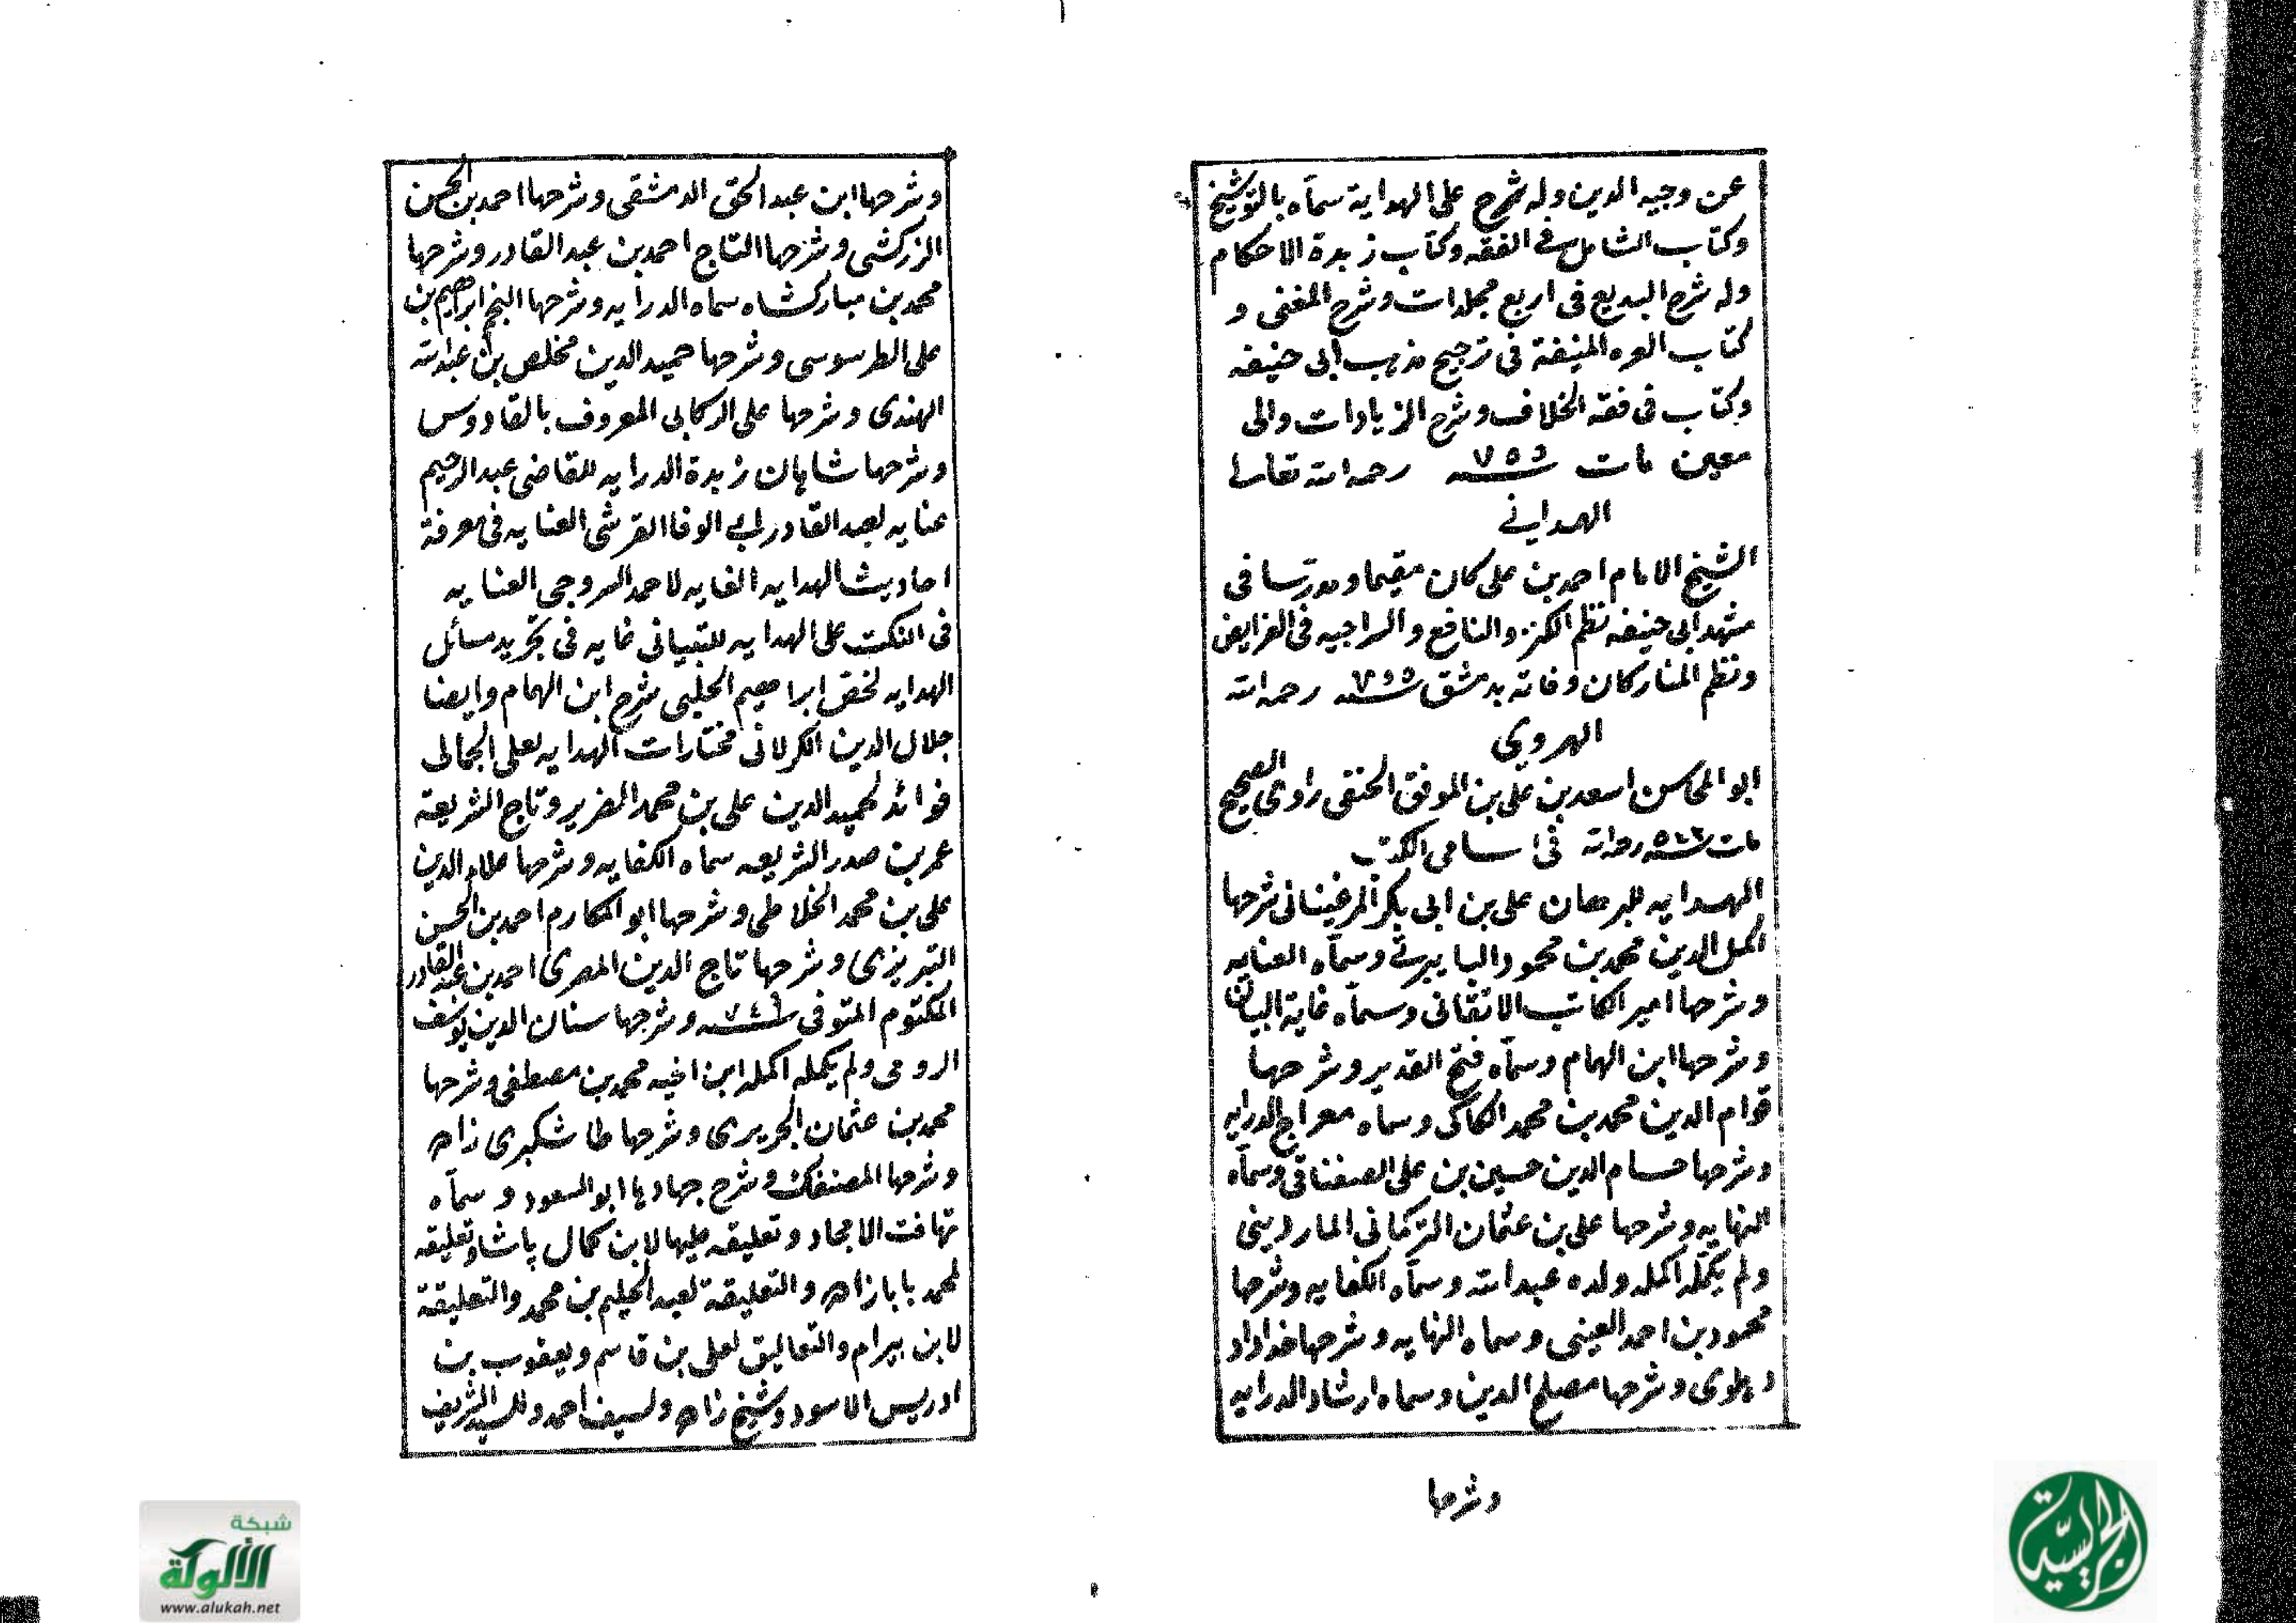 عن وجيه الدين وله شرح على الهداية سماه بالتوشيخ
وكتاب الشامل في الفقه وكتاب زبدة الاحكام
وله شرح البديع فى اربع مجلدات وشرح المغنى و
كتاب الغره المنيفة فى ترجيح مذهب أبى حنيفه
وكتاب فى فقه الخلاف وشرح الزيادات والى
معين مات رحمه الله تعالى
الهمدانى
الشيخ الامام احمد بن على كان مقيما ومدرسا فى
مشهد أبى حنيفه نظم الكنز والنافع والسراجيه فى الفرايض
ونظم المنار كان وفاته بدمشق ٧٥٥ رحمه الله
الهروي
ابو المحاسن اسعد بن على بن الموفق الحنفى راوى الصحيح
مات رحمه الله فى اسامى الكتب
الهدايه للبرهان على بن ابى بكر المرغينانى شرحها
اكمل الدين محمد بن محمود البابيرتى وسماه العنايه
وشرحها امير الكاتب الاتقانى وسماه غاية البيان
وشرحها ابن الهمام وسماه فتح القدير وشرحها
قوام الدين محمد بن محمد الكاكى وسماه معراج الدرايه
وشرحها حسام الدين حسين بن على الصغناقى وسماه
النهايه وشرحها على بن عثمان التركمانى الماردينى
ولم يكمله اكمله ولده عبد الله وسماه الكفايه وشرحها
محمود بن احمد العينى وسماه النهايه وشرحها خداداد
دهلوى وشرحها مصلح الدين وسماه ارشاد الدرايه
وشرحها
وشرحها ابن عبد الحق الدمشقى وشرحها احمد بن الحسن
الزركشى وشرحها التاج احمد بن عبد القادر وشرحها
محمد بن مباركشاه سماه الدرايه وشرحها النجم ابراهيم بن
على الطرسوسى وشرحها حميد الدين مخلص بن عبد الله
الهندى وشرحها على الركابى المعروف بالقادوس
وشرحها شاهان زبدة الدرايه للقاضى عبد الرحيم
عنايه لعبد القادر ابى الوفا القرشى العنايه فى معرفة
احاديث الهدايه الغايه لاحمد السروجى العنايه
فى النكت على الهدايه للتبيانى غايه فى تجريد مسائل
الهدايه لخص ابراهيم الحلبى شرح ابن الهمام وايضا
جلال الدين الكرلانى مختارات الهدايه لعلى الجمالى
فوائد لحميد الدين على بن محمد الضرير وتاج الشريعة
عمر بن صدر الشريعه سماه الكفايه وشرحها علاء الدين
على بن محمد الخلاطى وشرحها ابو المكارم احمد بن الحسن
التبريزى وشرحها تاج الدين المصرى احمد بن عبد القادر
المكتوم المتوفى ٧٤٦ وشرحها سنان الدين يوسف
الرومى ولم يكمله اكمله ابن اخيه محمد بن مصطفى وشرحها
محمد بن عثمان الحريرى وشرحها طاشكبرى زاده
وشرحها المصنفك وشرح جهادها ابو السعود وسماه
تهافت الامجاد وتعليقه عليها لابن كمال پاشا وتعليقه
لمحمد بابازاده والتعليقة لعبد الحليم بن محمد والتعليقة
لابن بيرام والتعاليق لعلى بن قاسم ويعقوب بن
ادريس الاسود وشيخ زاده ولسيف احمد وللسيد الشريف
شبكة
الألوكة
www.alukah.net